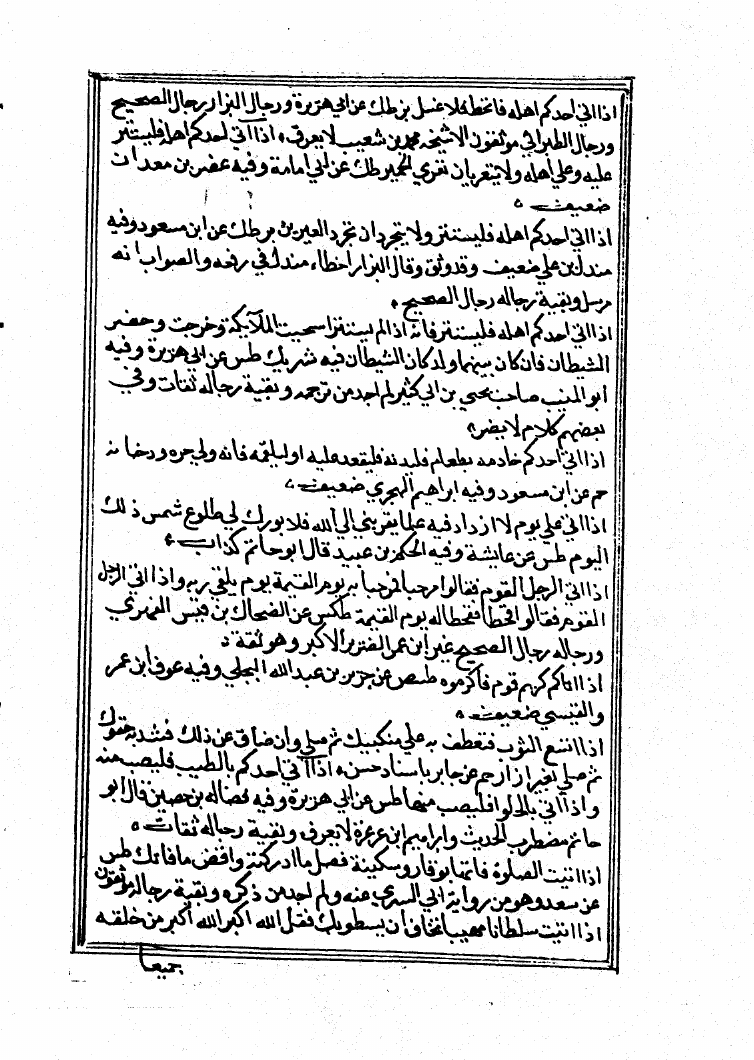 اذا اتى احدكم اهله فاقحط فلا غسل بز طك عن ابي هريرة ورجال البزار رجال الصحيح
ورجال الطبراني موثقون الا شيخه محمد بن شعيب لا يعرف، اذا اتى احدكم اهله فليستتر
عليه وعلى اهله ولا يتعريان تعري الحمير طك عن ابي امامة وفيه عفير بن معدان
ضعيف
اذا اتى احدكم اهله فليستتر ولا يتجردان تجرد العيرين بز طك عن ابن مسعود وفيه
مندل بن علي ضعيف وقد وثق وقال البزار اخطاء مندل في رفعه والصواب انه
مرسل وبقية رجاله رجال الصحيح
اذا اتى احدكم اهله فليستتر فانه اذا لم يستتر استحيت الملآئكة وخرجت وحضر
الشيطان فان كان بينهما ولد كان الشيطان فيه شريك طس عن ابى هريرة وفيه
أبو المنيب صاحب يحيى بن ابي كثير لم اجد من ترجمه وبقية رجاله ثقات وفي
بعضهم كلام لا يضر
اذا اتى احدكم خادمه بطعام فليدنه فليقعده عليه او ليلقمه فانه ولي حره ودخانه
حم عن ابن مسعود وفيه ابراهيم الهجري ضعيف
اذا اتى علي يوم لا ازداد فيه علما يقربني الى الله فلا بورك لي طلوع شمس ذلك
اليوم طس عن عايشة وفيه الحكم بن عبيد قال ابو حاتم كذاب
اذا اتى الرجل القوم فقالوا مرحبا فمرحبا به يوم القيمة يوم يلقى ربه واذا اتى الرجل
القوم فقالوا قحطا فقحطا له يوم القيمة طكس عن الضحاك بن قيس الفهري
ورجاله رجال الصحيح غير ابن عمر الضرير الاكبر وهو ثقة
اذا اتاكم كريم قوم فاكرموه طبص عن جرير بن عبد الله البجلي وفيه عوف ابن عمر
والقيسي ضعيف
اذا اتسع الثوب فتعطف به على منكبيك ثم صلي وان ضاق عن ذلك فشد به حقوك
ثم صلي بغير ازار حم عن جابر باسناد حسن، اذا اتى احدكم بالطيب فليصب منه
واذا اتى بالحلوا فليصب منها طس عن ابي هريرة وفيه فضاله بن حصين قال ابو
حاتم مضطرب الحديث وابراهيم ابن عرعرة لا يعرف وبقية رجاله ثقات
اذا اتيت الصلوة فاتها بوقار وسكينة فصل ما ادركت واقض ما فاتك طس
عن سعد وهو من رواية ابي السري عنه ولم اجد من ذكره وبقية رجاله موثقون
اذا اتيت سلطانا مهيبا تخاف أن يسطو بك فقل الله اكبر الله أكبر من خلقه
جميعا